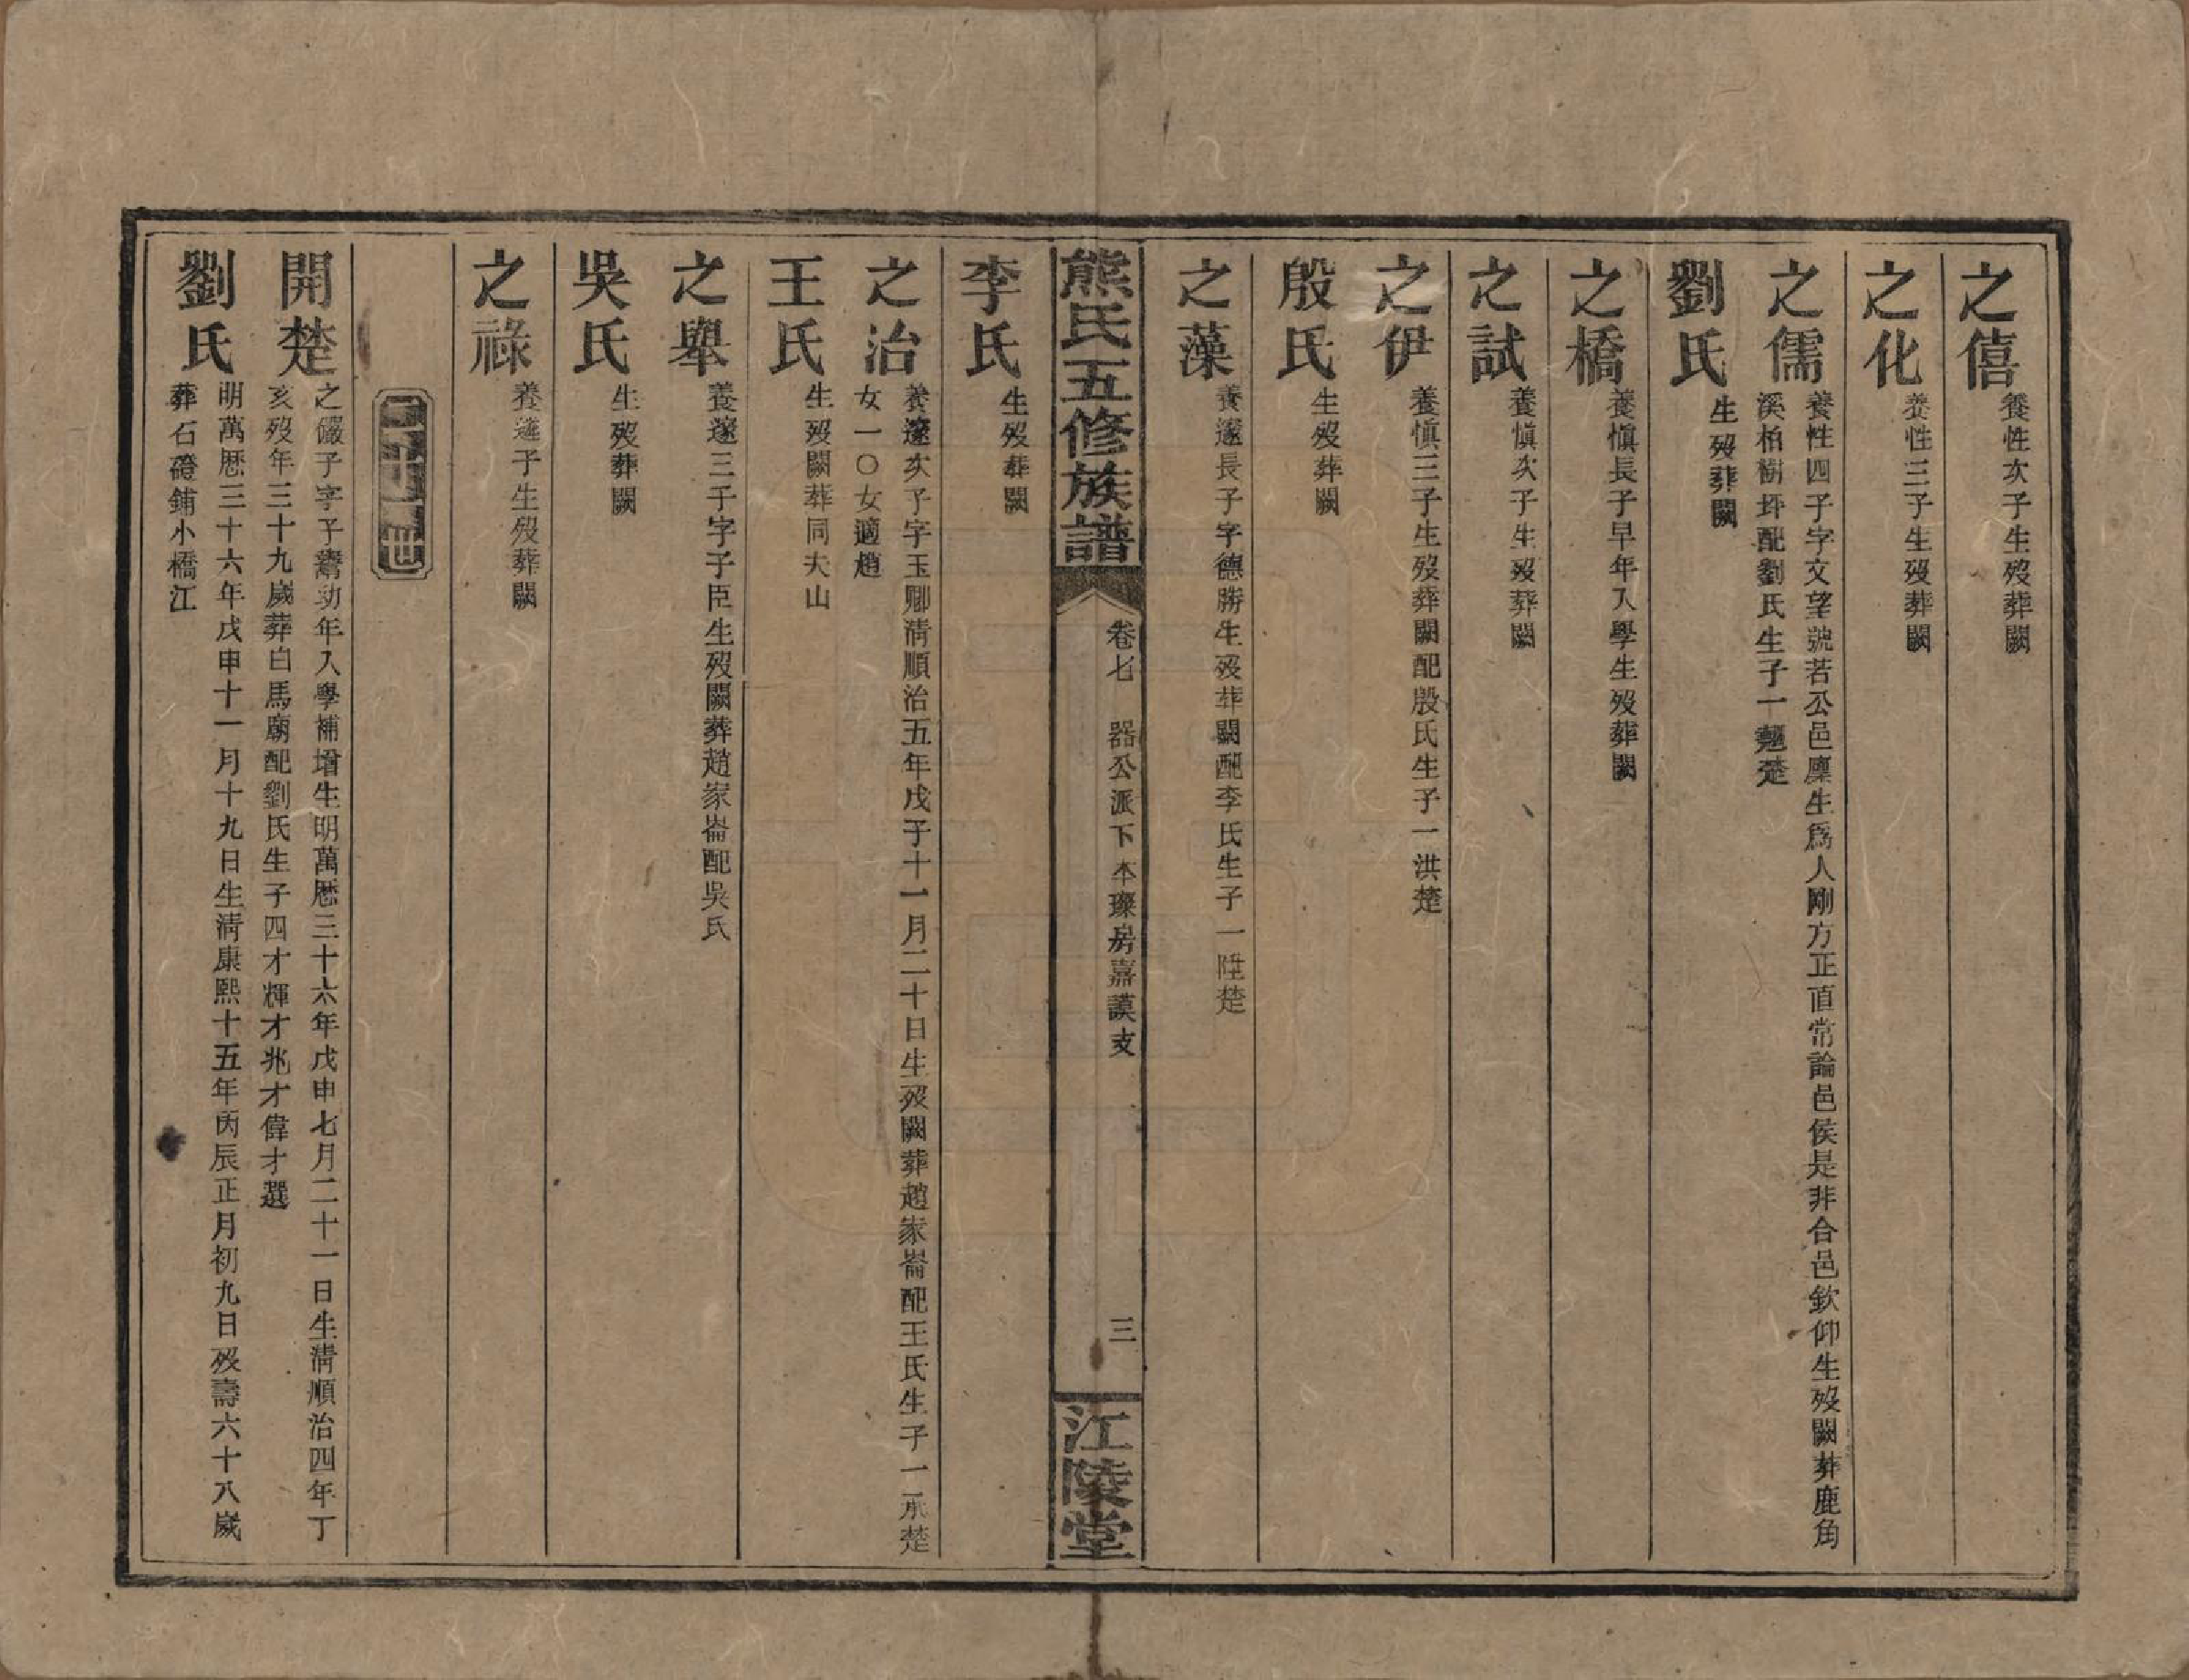 之僖
養性次子生歿葬闕
之化
養性三子生歿葬闕
之儒
養性四子字文望號若公邑廩生爲人剛方正直常論邑侯是非合邑欽仰生歿闕葬鹿角
溪柏樹坪配劉氏生子一楚
劉氏
生歿葬闕
之橋
養愼長子早年入學生歿葬闕
之試
養愼次子生歿葬闕
之伊
養愼三子生歿葬闕配殷氏生子一洪楚
殷氏
生歿葬闕
之藻
養邃長子字德勝生歿葬闕配李氏生子一陞楚
熊氏五修族譜
卷七 器公派下本璨房嘉謨支
三
江陵堂
李氏
生歿葬闕
之治
養邃次子字玉卿淸順治五年戊子十一月二十日生歿闕葬趙家崙配王氏生子一承楚
女一〇女適趙
王氏
生歿闕葬同夫山
之舉
養邃三子字子臣生歿闕葬趙家崙配吳氏
吳氏
生歿葬闕
之祿
養子生歿葬闕
開楚
之儼子字子幼年入學補增生明萬曆三十六年戊申七月二十一日生淸順治四年丁
亥歿年三十九歲葬白馬廟配劉氏生子四才輝才兆才偉才選
劉氏
明萬曆三十六年戊申十一月十九日生淸康熙十五年丙辰正月初九日歿壽六十八歲
葬石磴鋪小橋江